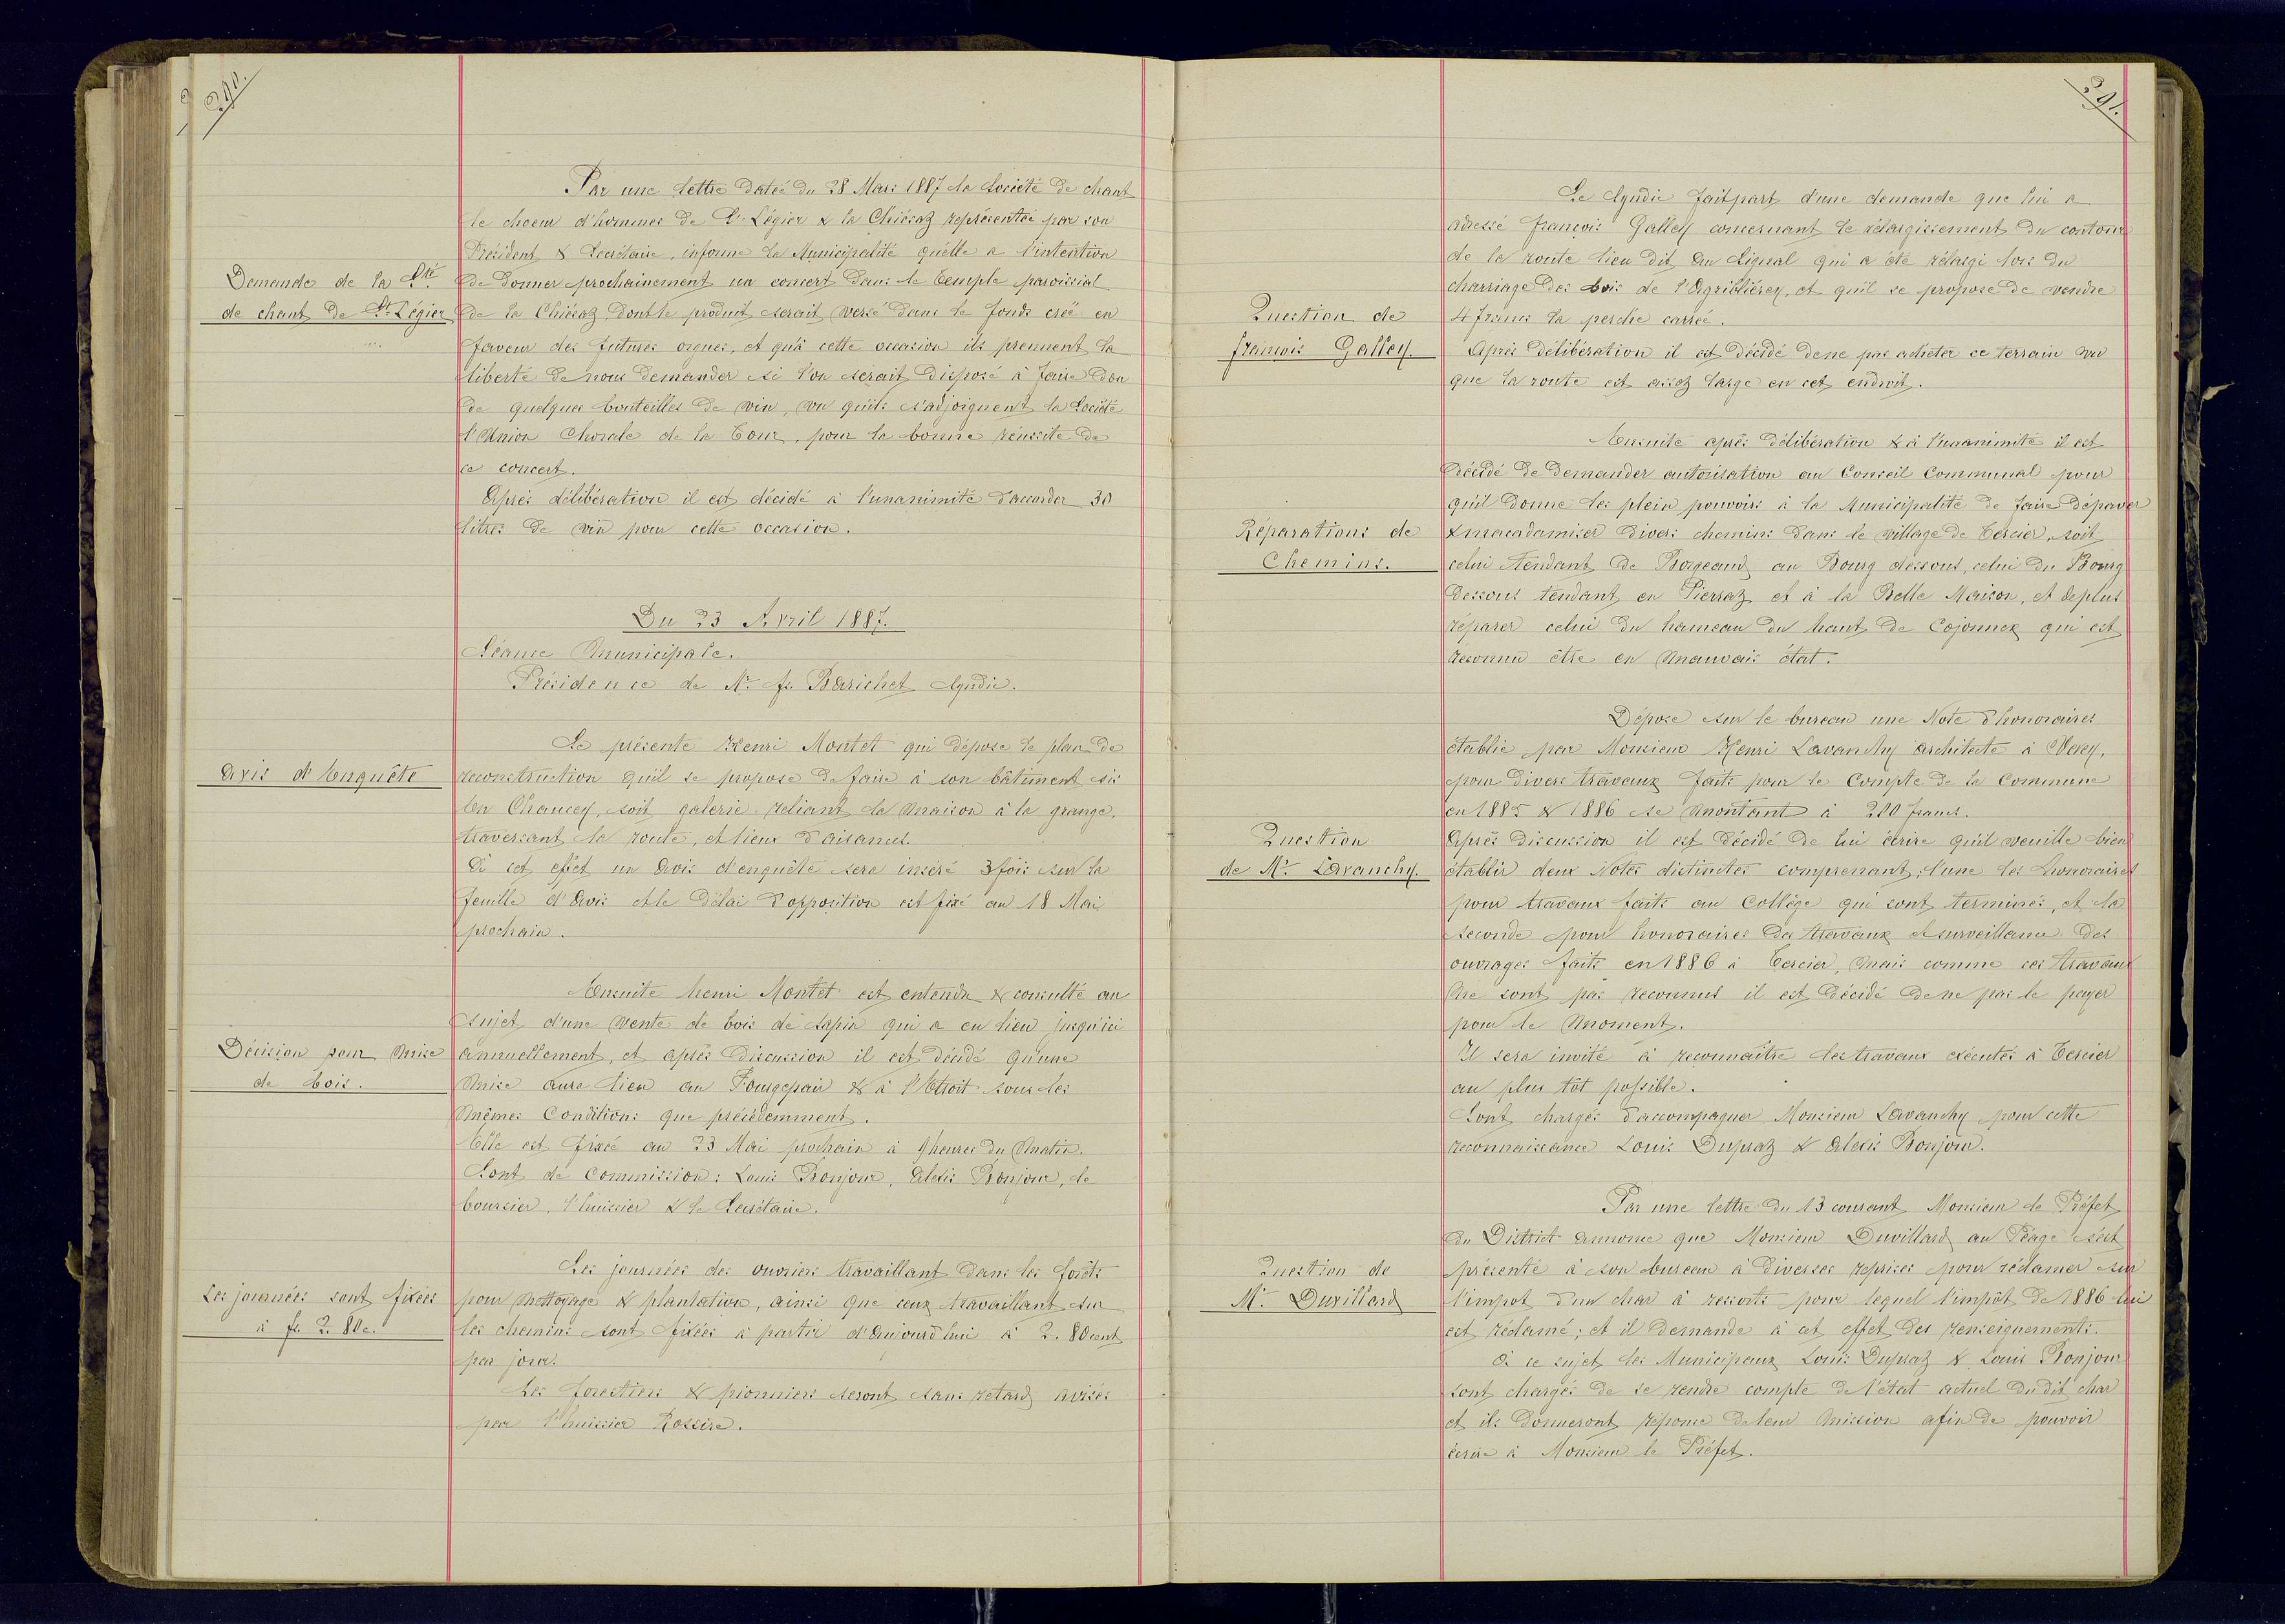 290.
Par une lettre datée du 28 Mars 1887 la Société de chant
le choeur d'hommes de St Légier & la Chiésaz représentée par son
Président & Secrétaire, informe la Municipalité qu'elle a l'intention
Demande de la Sté
de chant de St Légier
de donner prochainement un concert dans le temple paroissial
de la Chiésaz, dont le produit serait versé dans le fonds créé en
faveur des futures orgues, et qu'à cette occasion ils prennent la
liberté de nous demander si l'on serait disposé à faire don
de quelques bouteilles de vin, vu qu'ils s'adjoignent la Société
l'Union Chorale de la Tour, pour la bonne réussite de
ce concert.
Après délibération il est décidé à l'unanimité d'accorder 30
litres de vin pour cette occasion.
Du 23 Avril 1887.
Séance Municipale.
Présidence de Mr. fs. Barichet Syndic.
Avis d'Enquête
Se présente Henri Montet qui dépose le plan de
reconstruction qu'il se propose de faire à son bâtiment sis
en Chaucey, soit galerie reliant la maison à la grange,
traversant la route, et lieux d'aisances.
A cet effet un avis d'enquête sera inséré 3 fois sur la
feuille d'Avis et le délai d'opposition est fixé au 18 Mai
prochain.
Décision pour Mise
de bois.
Ensuite henri Montet est entendu & consulté au
sujet d'une vente de bois de sapin qui a eu lieu jusqu'ici
annuellement, et après discussion il est décidé qu'une
Mise aura lieu au Fourgepair & à l'Etroit sous les
mêmes Conditions que précédemment.
Elle est fixée au 23 Mai prochain à 9 heures du Matin.
Sont de Commission: Louis Bonjour, Alexis Bonjour, le
boursier, l'huissier & le Secrétaire.
Les journées sont fixées
à fr. 2. 80 c.
Les journées des ouvriers travaillant dans les forêts
pour nettoyage & plantation, ainsi que ceux travaillant sur
les chemins sont fixées à partir d'aujourd'hui à 2. 80 cent
par jour.
Les forestiers & pionniers seront sans retard avisés
par l'huissier Rossire.
291.
Question de
françois Galley.
Le Syndic fait part d'une demande que lui a
adressé françois Galley concernant le rélargissement du contour
de la route lieu dit au Signal qui a été rélargi lors du
charriage des bois de l'Agriblièrey, et qu'il se propose de vendre
4 francs la perche carrée.
Après délibération il est décidé de ne pas acheter ce terrain vu
que la route est assez large en cet endroit.
Réparations de
Chemins.
Ensuite après délibération & à l'unanimité il est
décidé de demander autorisation au Conseil Communal pour
qu'il donne les plein pouvoirs à la Municipalité de faire dépaver
& macadamiser divers chemins dans le village de Tercier, soit
celui tendant de Borgeaud au Bourg dessous, celui du Bourg
dessous tendant en Pierraz et à la Belle Maison, et de plus
réparer celui du hameau du haut de Cojonnex qui est
reconnu être en mauvais état.
Question
de Mr. Lavanchy.
Dépose sur le bureau une Note d'honoraires
établie par Monsieur Henri Lavanchy architecte à Vevey,
pour divers travaux faits pour le Compte de la Commune
en 1885 & 1886 se montant à 200 francs.
Après discussion il est décidé de lui écrire qu'il veuille bien
établir deux Notes distinctes comprenant, l'une les honoraires
pour travaux faits au Collège qui sont terminés, et la
seconde pour honoraires des travaux et surveillance des
ouvrages faits en 1886 à Tercier, mais comme ces travaux
ne sont pas reconnus il est décidé de ne pas le payer
pour le moment.
Il sera invité à reconnaître les travaux exécutés à Tercier
au plus tôt possible.
Sont chargés d'accompagner Monsieur Lavanchy pour cette
reconnaissance Louis Dupraz & Alexis Bonjour.
Question de
Mr. Duvillard
Par une lettre du 13 courant Monsieur le Préfet
du District annonce que Monsieur Duvillard au Péage s'est
présenté à son bureau à diverses reprises pour réclamer sur
l'impot d'un char à ressorts pour lequel l'impôt de 1886 lui
est réclamé; et il demande à cet effet des renseignements.
A ce sujet les Municipaux Louis Dupraz & Louis Bonjour
sont chargés de se rendre compte de l'état actuel du dit char
et ils donneront réponse de leur mission afin de pouvoir
écrire à Monsieur le Préfet.